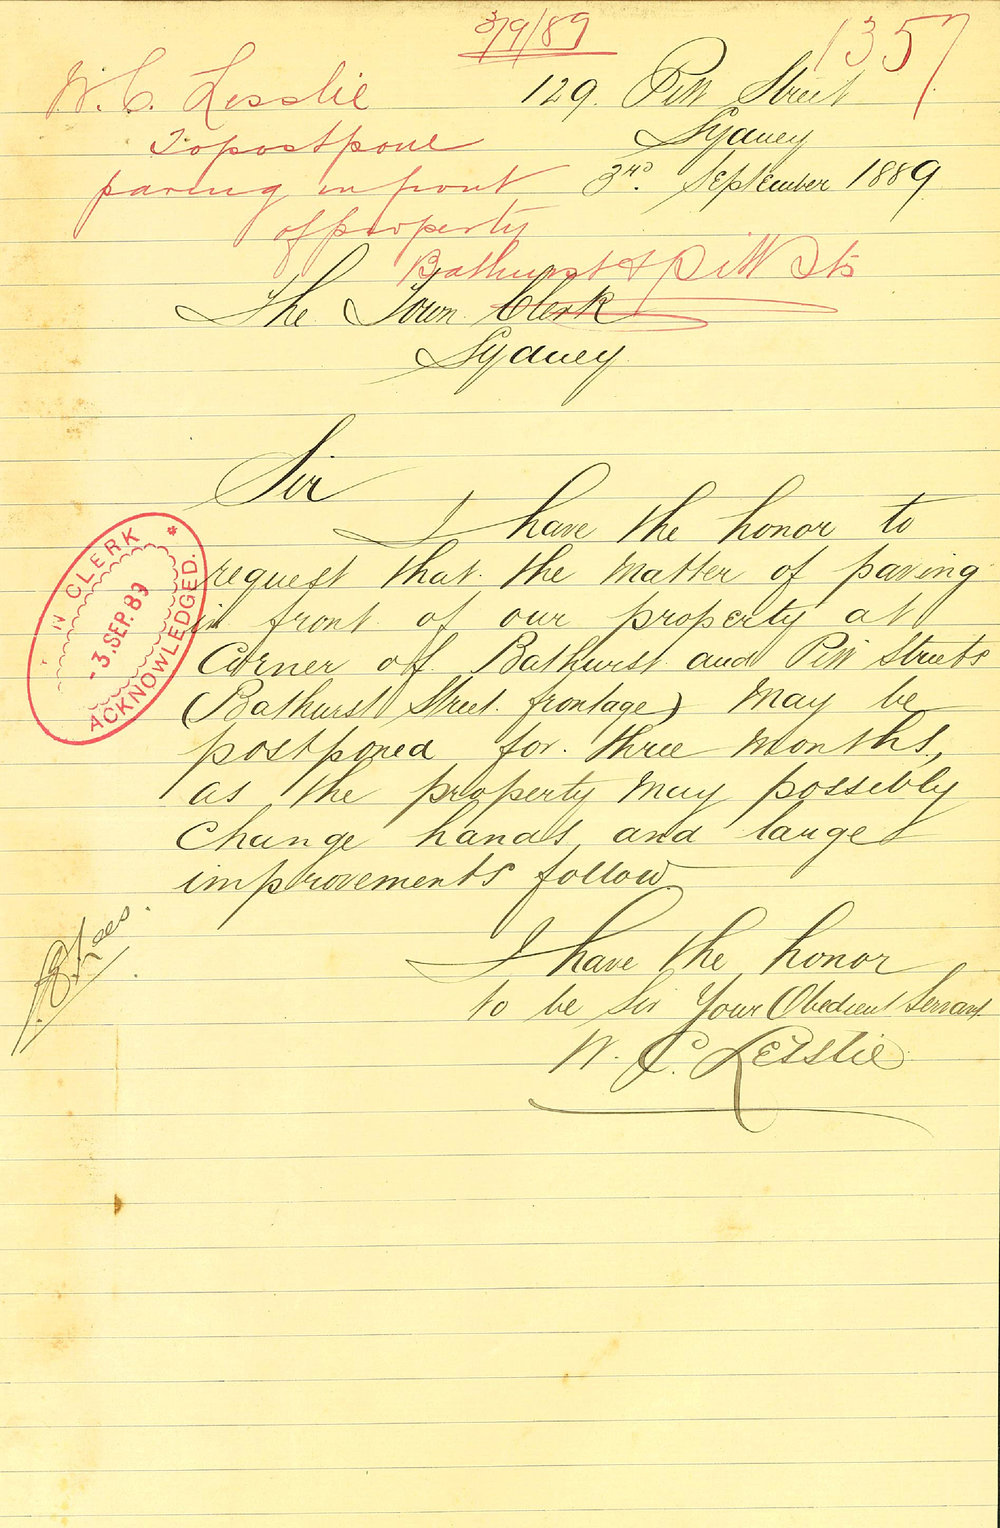 3/9/89
1357
W. C. Lesslie
To postpone
paving in front
of property
Bathurst & Pitt Sts
129. Pitt Street
Sydney
3rd. September 1889
The Town Clerk
Sydney
Sir
I have the honor to
request that the matter of paving
in front of our property at
Corner of Bathurst and Pitt Streets
(Bathurst Street frontage) may be
postponed for three months,
as the property may possibly
change hands and large
improvements follow
I have the honor
to be Sir Your Obedient Servant
W. C. Lesslie
N CLERK
3. SEP. 89
ACKNOWLEDGED.
Lees.